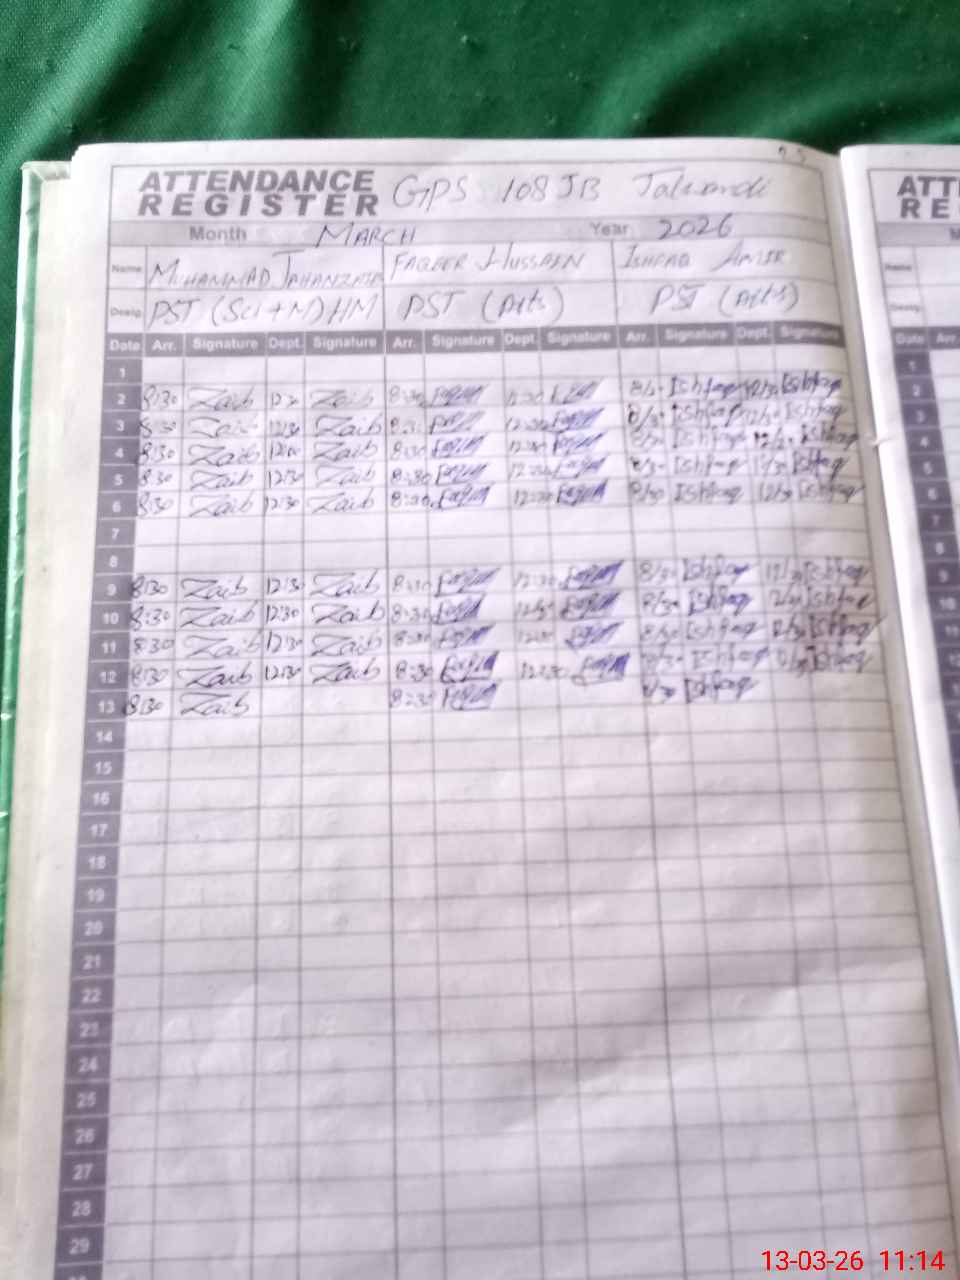 ATTENDANCE REGISTER GPS 108 JB Talwandi
Month MARCH Year 2026
Name MUHAMMAD JAHANZAIB FAQEER HUSSAIN ISHFAQ AMIR
Desig. PST (Sci+M) HM PST (Arts) PST (Arts)
Date Arr. Signature Dept. Signature Arr. Signature Dept. Signature Arr. Signature Dept. Signature
1
2 8:30 Zaib 12:30 Zaib 8:30 12:30 8/30 Ishfaq 12/30 Ishfaq
3 8:30 Zaib 12:30 Zaib 8:30 12:30 8/30 Ishfaq 12/30 Ishfaq
4 8:30 Zaib Zaib 8:30 12:30 8/30 Ishfaq 12/30 Ishfaq
5 8:30 Zaib 12:30 Zaib 8:30 12:30 8/30 Ishfaq 12/30 Ishfaq
6 8:30 Zaib 12:30 Zaib 8:30 12:30 8/30 Ishfaq 12/30 Ishfaq
7
8
9 8:30 Zaib 12:30 Zaib 8:30 12:30 8/30 Ishfaq 12/30 Ishfaq
10 8:30 Zaib 12:30 Zaib 8:30 12:30 8/30 Ishfaq 12/30 Ishfaq
11 8:30 Zaib 12:30 Zaib 8:30 12:30 8/30 Ishfaq 12/30 Ishfaq
12 8:30 Zaib 12:30 Zaib 8:30 12:30 8/30 Ishfaq 12/30 Ishfaq
13 8:30 Zaib 8:30 8/30 Ishfaq
14
15
16
17
18
19
20
21
22
23
24
25
26
27
28
29
13-03-26 11:14